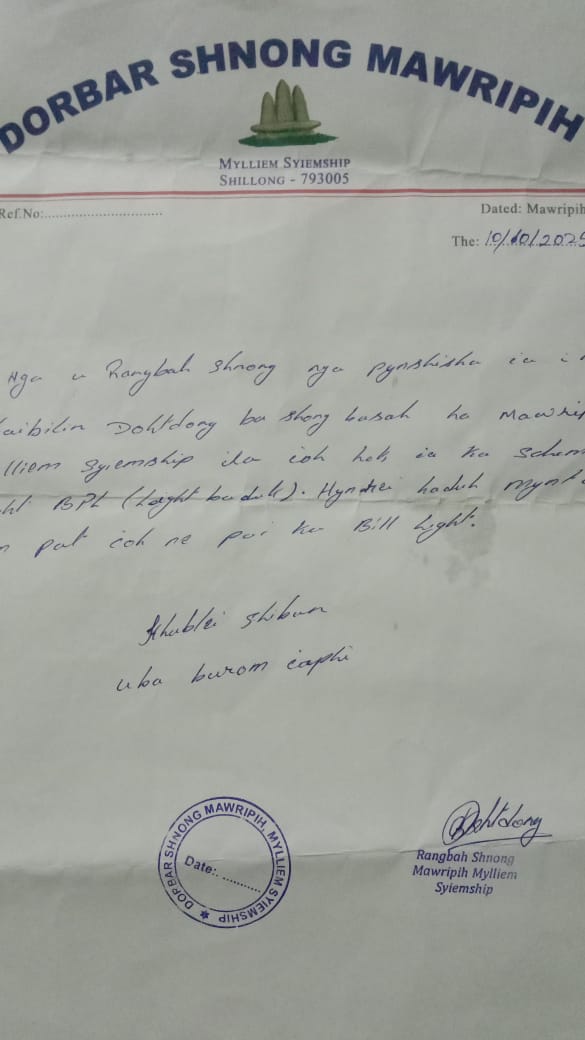 DORBAR SHNONG MAWRIPIH
MYLLIEM SYIEMSHIP
SHILLONG - 793005
Ref.No:..............................
Dated: Mawripih
The: 10/10/2025
Nga u Rangbah Shnong nga pynshisha ia i
Dohtdong ba shong basah ha Mawrip
lliem Syiemship ila ioh hok ia ka Schem
ht BPL (Light baduk). Hyndrei haduh mynt
pat ioh ne poi ka Bill Light.
Khublei Shibun
uba burom iaphi
DORBAR SHNONG MAWRIPIH, MYLLIEM SYIEMSHIP
Date:. ..........
Dohtdong
Rangbah Shnong
Mawripih Mylliem
Syiemship